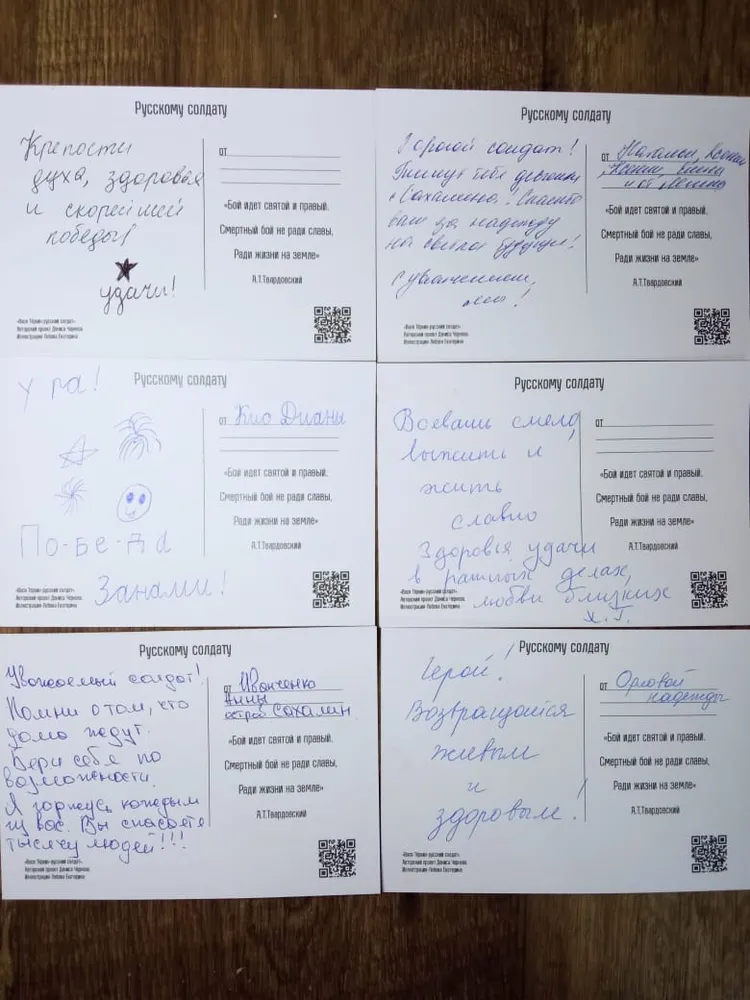 Русскому солдату
Крепости
духа, здоровья
и скорейшей
победы!
удачи!
от
«Бой идет святой и правый.
Смертный бой не ради славы,
Ради жизни на земле»
А.Т.Твардовский
«Вася Тёркин-русский солдат».
Авторский проект Дениса Чернова.
Иллюстрации Лобова Екатерина
Русскому солдату
Дорогой солдат!
Пишут тебе девчонки
с Сахалина! Спасибо
вам за надежду
на светлое будущее!
С уважением,
мы!
от Наталии,
Ксении, Елены
и от
«Бой идет святой и правый.
Смертный бой не ради славы,
Ради жизни на земле»
А.Т.Твардовский
«Вася Тёркин-русский солдат».
Авторский проект Дениса Чернова.
Иллюстрации Лобова Екатерина
Русскому солдату
Ура!
По-бе-да
Занами!
от Кио Дианы
«Бой идет святой и правый.
Смертный бой не ради славы,
Ради жизни на земле»
А.Т.Твардовский
«Вася Тёркин-русский солдат».
Авторский проект Дениса Чернова.
Иллюстрации Лобова Екатерина
Русскому солдату
Воевать смело,
выжить и
жить
славно
Здоровья, удачи
в ратных делах,
любви близких
Х.Г.
от
«Бой идет святой и правый.
Смертный бой не ради славы,
Ради жизни на земле»
А.Т.Твардовский
«Вася Тёркин-русский солдат».
Авторский проект Дениса Чернова.
Иллюстрации Лобова Екатерина
Русскому солдату
Уважаемый солдат!
Помни о том, что
дома ждут.
Бери себя по
возможности.
Я горжусь каждым
из вас. Вы спасаете
тысячу людей!!!
от Иванченко
Анны
остров Сахалин
«Бой идет святой и правый.
Смертный бой не ради славы,
Ради жизни на земле»
А.Т.Твардовский
«Вася Тёркин-русский солдат».
Авторский проект Дениса Чернова.
Иллюстрации Лобова Екатерина
Русскому солдату
Герой!
Возвращайся
живым
и
здоровым!
от Орловой
надежды
«Бой идет святой и правый.
Смертный бой не ради славы,
Ради жизни на земле»
А.Т.Твардовский
«Вася Тёркин-русский солдат».
Авторский проект Дениса Чернова.
Иллюстрации Лобова Екатерина